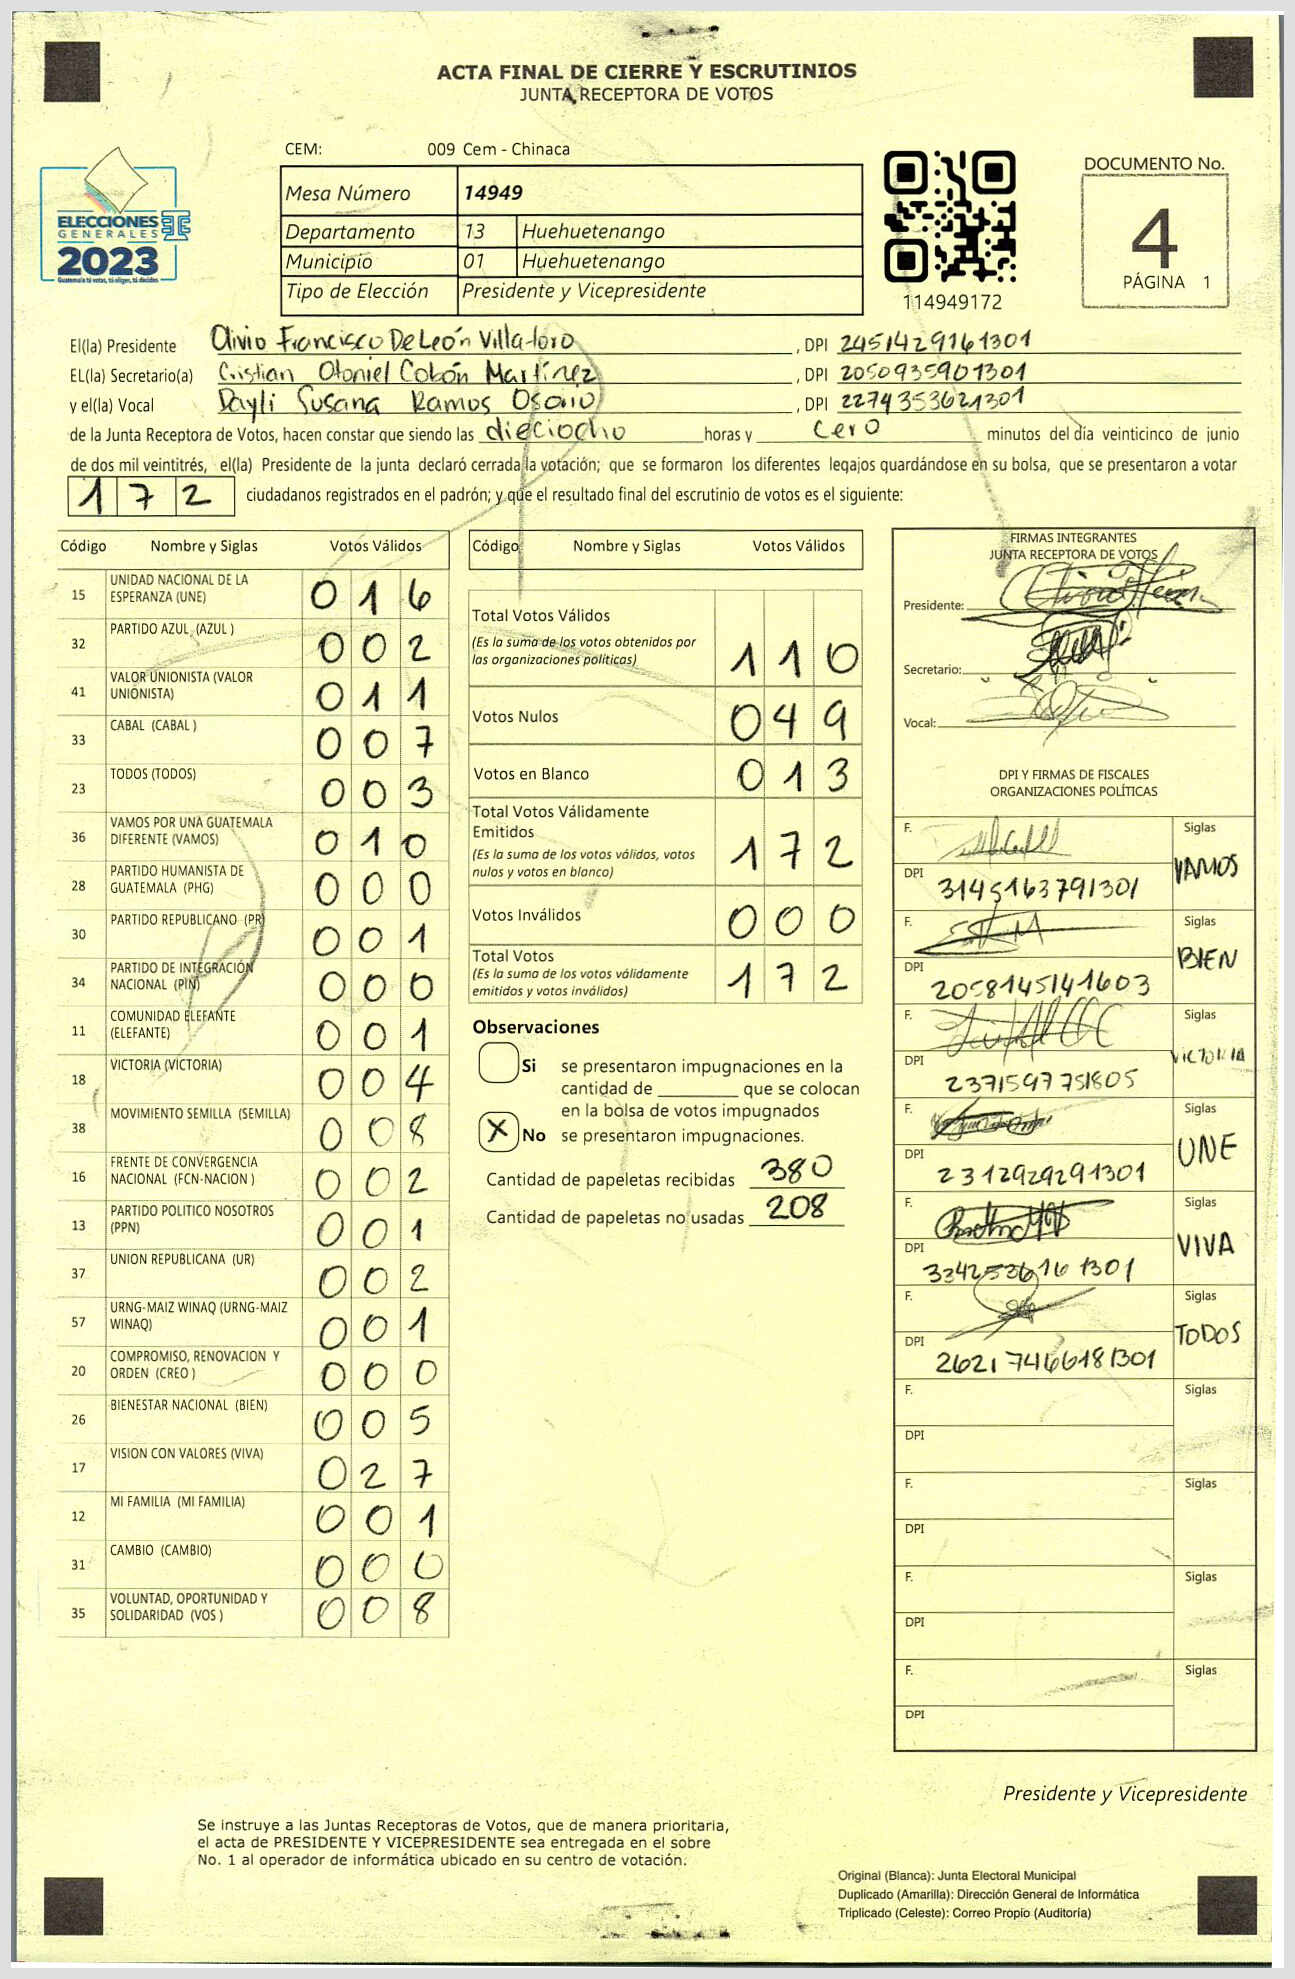 ACTA FINAL DE CIERRE Y ESCRUTINIOS
JUNTA RECEPTORA DE VOTOS
CEM: 009 Cem - Chinaca
ELECCIONES
GENERALES
2023
Guatemala tú votas, tú eliges, tú decides
Mesa Número 14949
Departamento 13 Huehuetenango
Municipio 01 Huehuetenango
Tipo de Elección Presidente y Vicepresidente
114949172
DOCUMENTO No.
4
PÁGINA 1
El(la) Presidente Olivio Francisco De León Villatoro, DPI 2451429161301
EL(la) Secretario(a) Cristian Otoniel Cobón Martínez, DPI 2050935901301
y el(la) Vocal Dayli Susana Ramos Osorio, DPI 2274353621301
de la Junta Receptora de Votos, hacen constar que siendo las dieciocho horas y cero minutos del día veinticinco de junio
de dos mil veintitrés, el(la) Presidente de la junta declaró cerrada la votación; que se formaron los diferentes legajos guardándose en su bolsa, que se presentaron a votar
172 ciudadanos registrados en el padrón; y que el resultado final del escrutinio de votos es el siguiente:
Código Nombre y Siglas Votos Válidos
15 UNIDAD NACIONAL DE LA ESPERANZA (UNE) 016
32 PARTIDO AZUL (AZUL ) 002
41 VALOR UNIONISTA (VALOR UNIONISTA) 011
33 CABAL (CABAL ) 007
23 TODOS (TODOS) 003
36 VAMOS POR UNA GUATEMALA DIFERENTE (VAMOS) 010
28 PARTIDO HUMANISTA DE GUATEMALA (PHG) 000
30 PARTIDO REPUBLICANO (PR) 001
34 PARTIDO DE INTEGRACIÓN NACIONAL (PIN) 000
11 COMUNIDAD ELEFANTE (ELEFANTE) 001
18 VICTORIA (VICTORIA) 004
38 MOVIMIENTO SEMILLA (SEMILLA) 008
16 FRENTE DE CONVERGENCIA NACIONAL (FCN-NACION ) 002
13 PARTIDO POLITICO NOSOTROS (PPN) 001
37 UNION REPUBLICANA (UR) 002
57 URNG-MAIZ WINAQ (URNG-MAIZ WINAQ) 001
20 COMPROMISO, RENOVACION Y ORDEN (CREO ) 000
26 BIENESTAR NACIONAL (BIEN) 005
17 VISION CON VALORES (VIVA) 027
12 MI FAMILIA (MI FAMILIA) 001
31 CAMBIO (CAMBIO) 000
35 VOLUNTAD, OPORTUNIDAD Y SOLIDARIDAD (VOS ) 008
Código Nombre y Siglas Votos Válidos
Total Votos Válidos
(Es la suma de los votos obtenidos por
las organizaciones políticas) 110
Votos Nulos 049
Votos en Blanco 013
Total Votos Válidamente
Emitidos
(Es la suma de los votos válidos, votos
nulos y votos en blanco) 172
Votos Inválidos 000
Total Votos
(Es la suma de los votos válidamente
emitidos y votos inválidos) 172
Observaciones
Si se presentaron impugnaciones en la
cantidad de ________ que se colocan
en la bolsa de votos impugnados
X No se presentaron impugnaciones.
Cantidad de papeletas recibidas 380
Cantidad de papeletas no usadas 208
FIRMAS INTEGRANTES
JUNTA RECEPTORA DE VOTOS
Presidente:
Secretario:
Vocal:
DPI Y FIRMAS DE FISCALES
ORGANIZACIONES POLÍTICAS
F. Siglas
DPI 3145163791301 VAMOS
F. Siglas
DPI 2058145141603 BIEN
F. Siglas
DPI 2371597751805 VICTORIA
F. Siglas
DPI 2312929291301 UNE
F. Siglas
DPI 3342536161301 VIVA
F. Siglas
DPI 26217466181301 TODOS
F. Siglas
DPI
F. Siglas
DPI
F. Siglas
DPI
F. Siglas
DPI
Presidente y Vicepresidente
Se instruye a las Juntas Receptoras de Votos, que de manera prioritaria,
el acta de PRESIDENTE Y VICEPRESIDENTE sea entregada en el sobre
No. 1 al operador de informática ubicado en su centro de votación.
Original (Blanca): Junta Electoral Municipal
Duplicado (Amarilla): Dirección General de Informática
Triplicado (Celeste): Correo Propio (Auditoría)